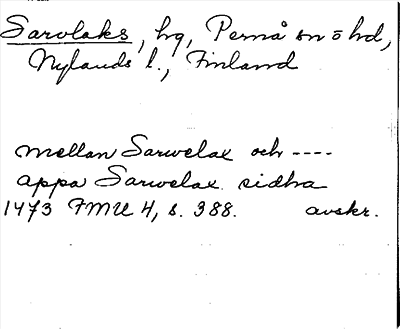 Sarvlaks, hg, Pernå sn o hd,
Nylands l., Finland
mellan Sarwelax och ----
appa Sarwelax sidha
1473 FMU 4, s. 388. avskr.